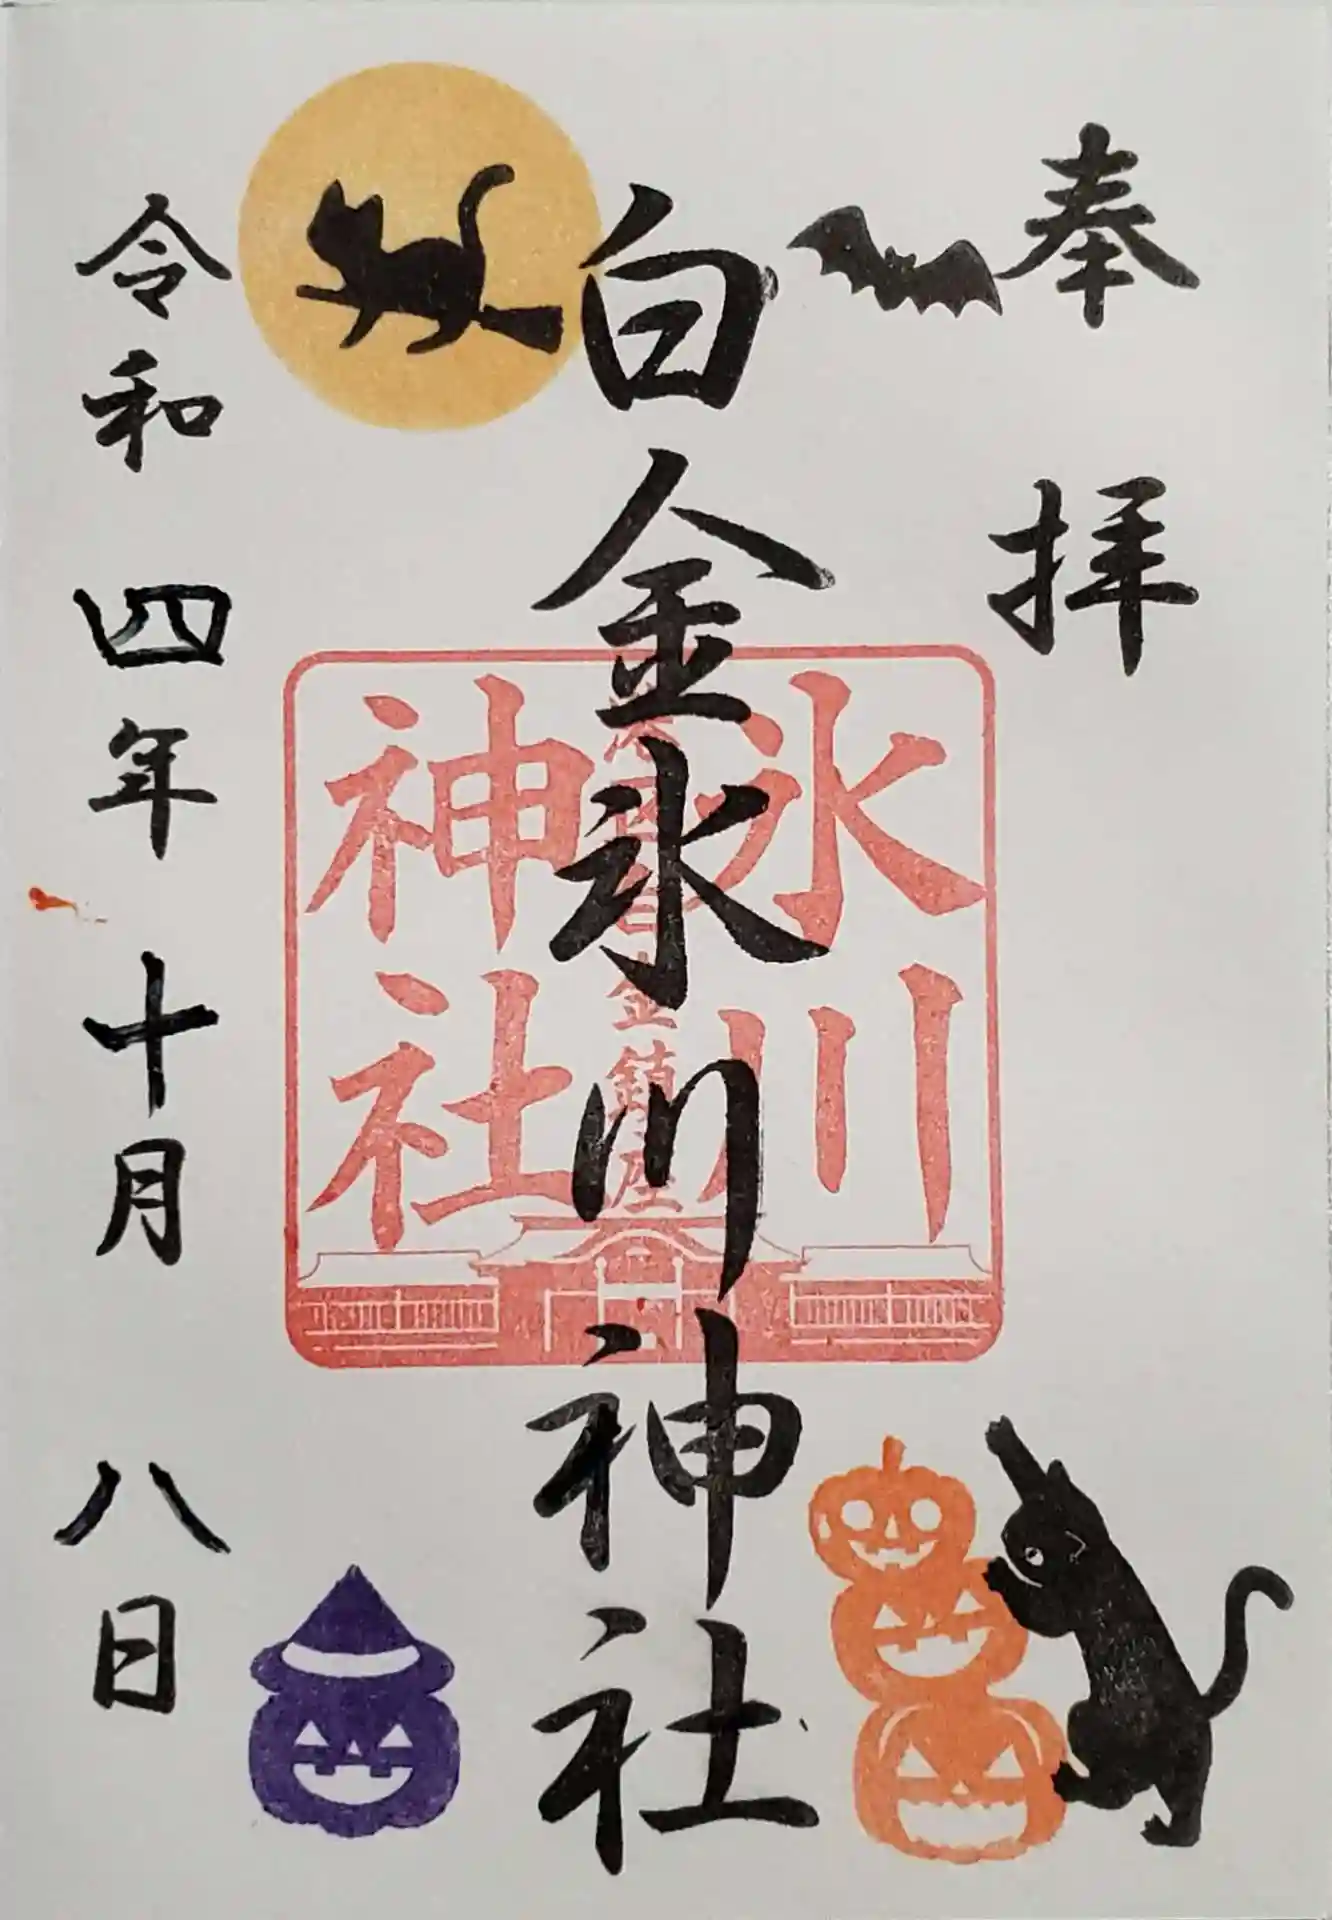 奉拝
白金氷川神社
氷川
神社
金鎮座
令和四年十月八日